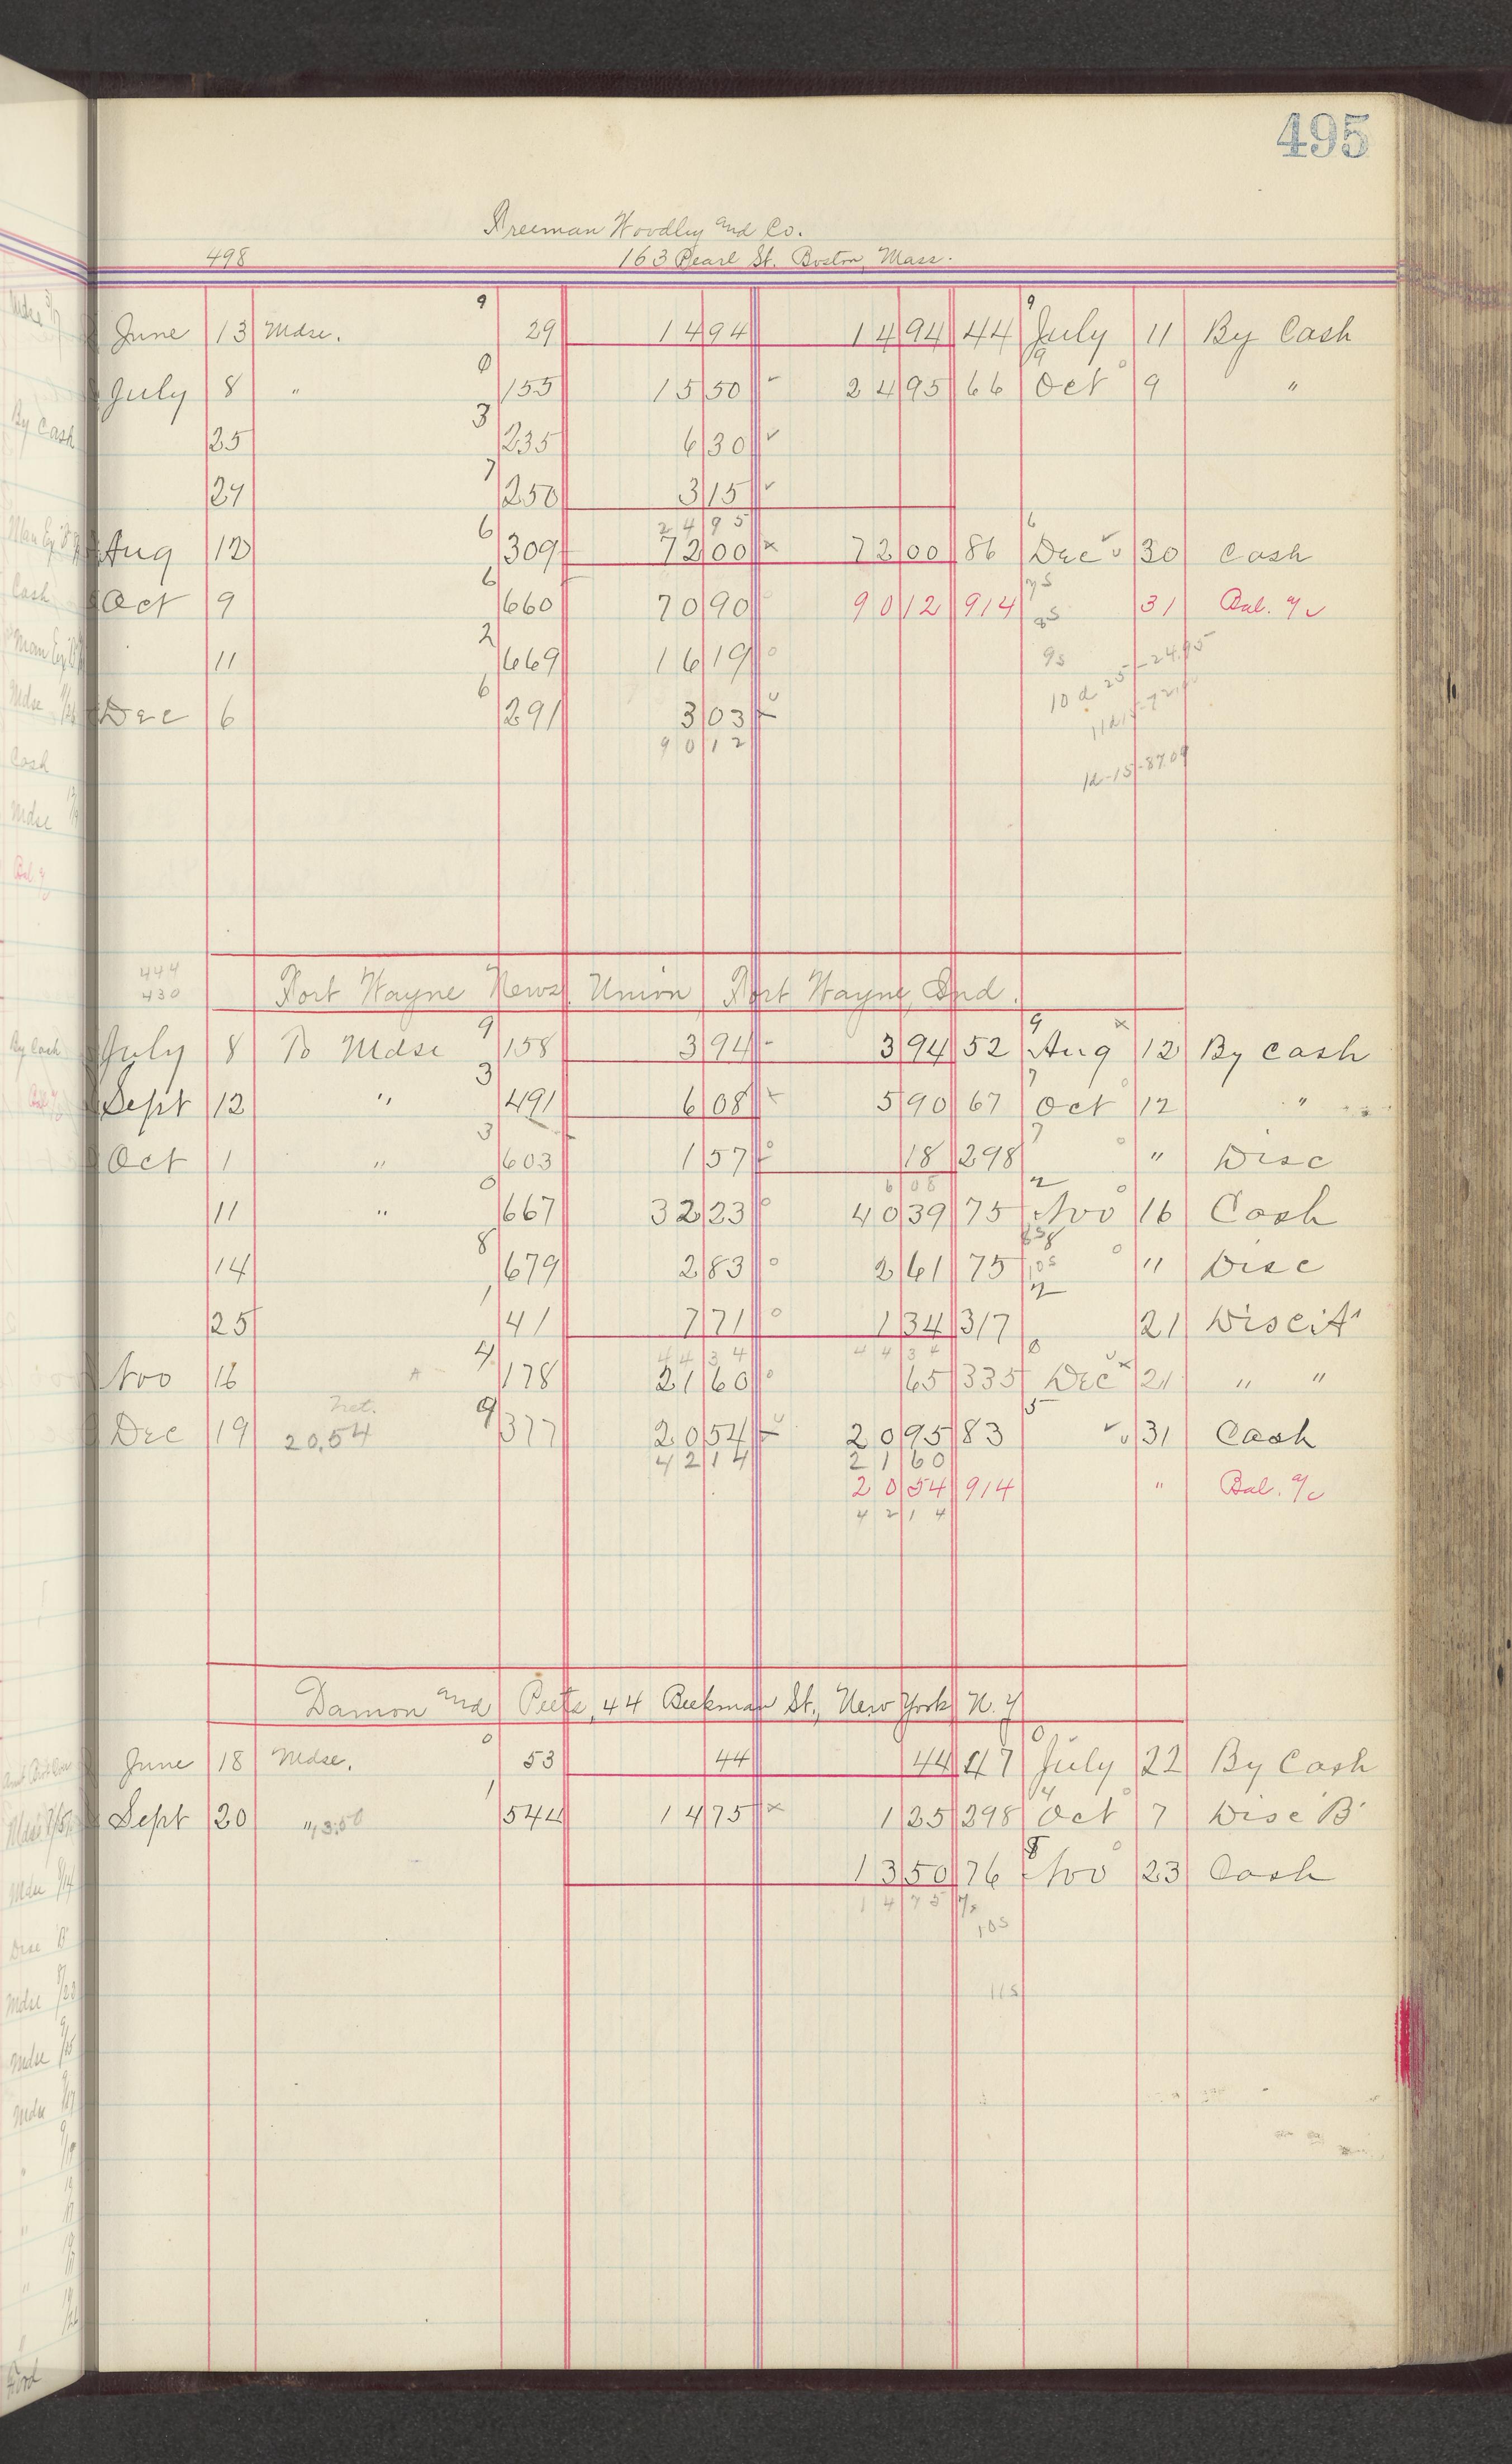 495
Freeman Woodley and Co.
498 163 Pearl St. Boston, Mass.
9 9
June 13 Mdse. 29 14 94 14 94 44 July 11 By Cash
0 9
July 8 " 155 15 50 24 95 66 Oct 9 "
3
25 235 6 30
7
27 250 3 15
24 95
6 6
Aug 12 309 72 00 x 72 00 86 Dec 30 Cash
6 7s
Oct 9 660 70 90 90 12 914 8s 31 Bal. a/c
2 9s
11 669 16 19 10 d 25 - 24.95
6
Dec 6 291 3 03
90 12
12-15-87.09
444
430 Fort Wayne News Union Fort Wayne, Ind.
9 9 x
July 8 To Mdse 158 3 94 3 94 52 Aug 12 By Cash
3 7
Sept 12 " 491 6 08 x 5 90 67 Oct 12 "
3 7
Oct 1 " 603 1 57 18 298 " Disc
0 6 08 2
11 " 667 32 23 40 39 75 Nov 16 Cash
8
14 679 2 83 2 61 75 10s " Disc
1 2
25 41 7 71 1 34 317 21 Disc "A"
4 44 34 44 34 0
Nov 16 178 21 60 65 335 Dec 21 " "
Net. 9 5
Dec 19 20,54 377 20 54 20 95 83 31 Cash
42 14 21 60
20 54 914 " Bal. a/c
42 14
Damon and Peets, 44 Beekman St., New York N. Y
0 0
June 18 Mdse. 53 44 44 47 July 22 By Cash
1 4
Sept 20 " 13.50 544 14 75 x 1 25 298 Oct 7 Disc "B"
8
13 50 76 Nov 23 Cash
14 75
10s
11s